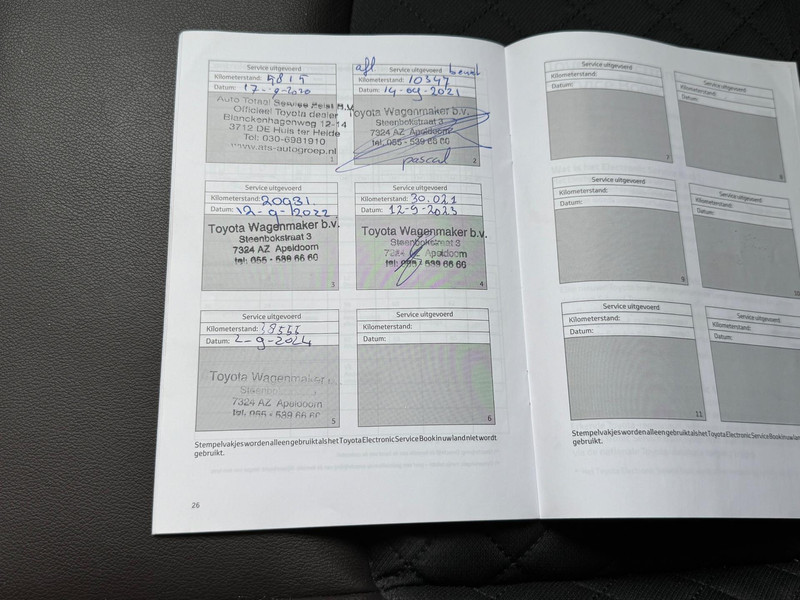 Service uitgevoerd
Kilometerstand: 9815
Datum: 17-9-2020
Auto Totaal Service Zeist B.V.
Officieel Toyota dealer
Blanckenhagenweg 12-14
3712 DE Huis ter Heide
Tel: 030-6981910
www.ats-autogroep.nl
1
afl.
Service uitgevoerd
Kilometerstand: 10347
Datum: 14-09-2021
Toyota Wagenmaker b.v.
Steenbokstraat 3
7324 AZ Apeldoorn
tel: 055 - 539 66 60
pascal
2
Service uitgevoerd
Kilometerstand: 20931.
Datum: 12-9-2022
Toyota Wagenmaker b.v.
Steenbokstraat 3
7324 AZ Apeldoorn
tel: 055 - 539 66 60
3
Service uitgevoerd
Kilometerstand: 30.021
Datum: 12-9-2023
Toyota Wagenmaker b.v.
Steenbokstraat 3
7324 AZ Apeldoorn
tel: 055 - 539 66 60
4
Service uitgevoerd
Kilometerstand: 38555
Datum: 2-9-2024
Toyota Wagenmaker
Steenbokstraat
7324 AZ Apeldoorn
tel: 055 - 539 66 60
5
Service uitgevoerd
Kilometerstand:
Datum:
6
Stempelvakjes worden alleen gebruikt als het Toyota Electronic Service Book in uw land niet wordt
gebruikt.
26
Service uitgevoerd
Kilometerstand:
Datum:
7
Service uitgevoerd
Kilometerstand:
Datum:
8
Service uitgevoerd
Kilometerstand:
Datum:
9
Service uitgevoerd
Kilometerstand:
Datum:
10
Service uitgevoerd
Kilometerstand:
Datum:
11
Service uitgevoerd
Kilometerstand:
Datum:
Stempelvakjes worden alleen gebruikt als het Toyota Electronic Service Book in uw land
gebruikt.